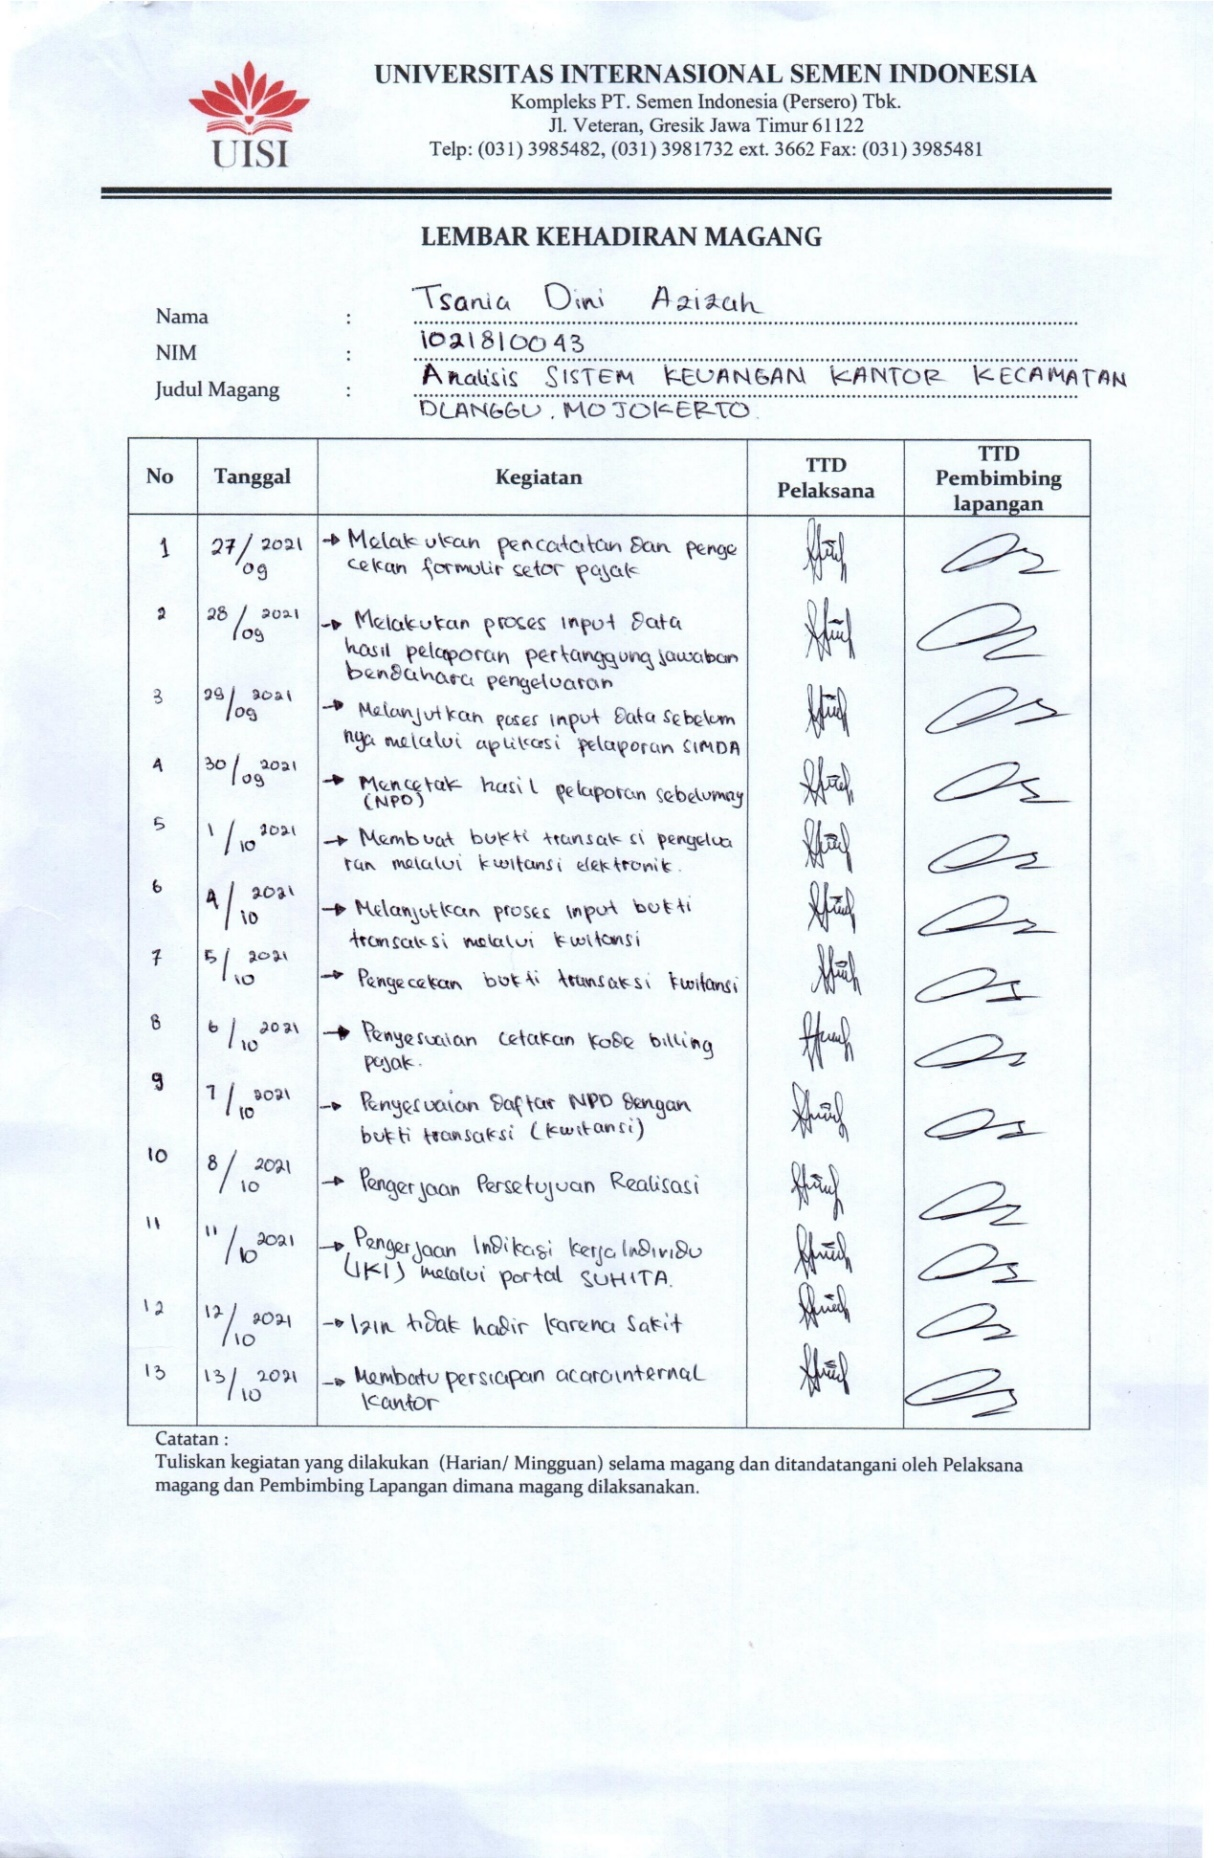 UISI
UNIVERSITAS INTERNASIONAL SEMEN INDONESIA
Kompleks PT. Semen Indonesia (Persero) Tbk.
Jl. Veteran, Gresik Jawa Timur 61122
Telp: (031) 3985482, (031) 3981732 ext. 3662 Fax: (031) 3985481
LEMBAR KEHADIRAN MAGANG
Nama : Tsania Dini Azizah
NIM : 1021810043
Judul Magang : Analisis SISTEM KEUANGAN KANTOR KECAMATAN
DLANGGU. MOJOKERTO.
No Tanggal Kegiatan TTD Pelaksana TTD Pembimbing lapangan
1 27/09 2021 → Melakukan pencatatan dan penge
cekan formulir setor pajak
2 28/09 2021 → Melakukan proses input data
hasil pelaporan pertanggung jawaban
bendahara pengeluaran
3 29/09 2021 → Melanjutkan poses input data sebelum
nya melalui aplikasi pelaporan SIMDA
4 30/09 2021 → Mencetak hasil pelaporan sebelumny
(NPD)
5 1/10 2021 → Membuat bukti transaksi pengelua
ran melalui kwitansi elektronik.
6 4/10 2021 → Melanjutkan proses input bukti
transaksi melalui kwitansi
7 5/10 2021 → Pengecekan bukti transaksi kwitansi
8 6/10 2021 → Penyesuaian cetakan kode billing
pajak.
9 7/10 2021 → Penyesuaian daftar NPD dengan
bukti transaksi (kwitansi)
10 8/10 2021 → Pengerjaan Persetujuan Realisasi
11 11/10 2021 → Pengerjaan Indikasi kerja Individu
(IKI) melalui portal SUHITA.
12 12/10 2021 → Izin tidak hadir karena sakit
13 13/10 2021 → Membatu persiapan acara internal
kantor
Catatan :
Tuliskan kegiatan yang dilakukan (Harian/ Mingguan) selama magang dan ditandatangani oleh Pelaksana
magang dan Pembimbing Lapangan dimana magang dilaksanakan.